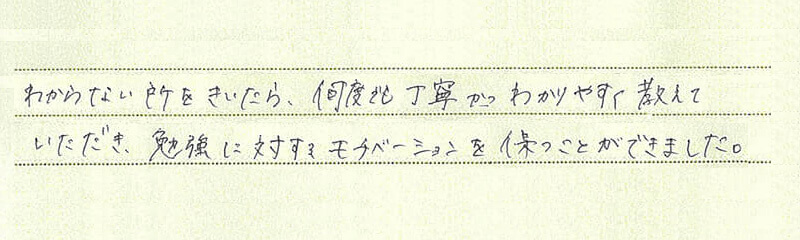 わからない所をきいたら、何度も丁寧かつわかりやすく教えて
いただき、勉強に対するモチベーションを保つことができました。